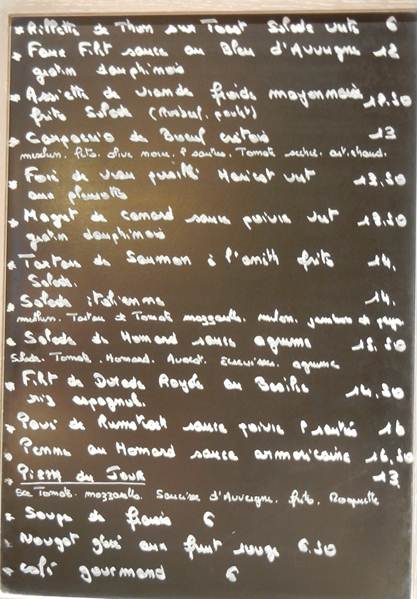 * Rillette de Thon sur Toast Salade verte 6
* Faux Filet sauce au Bleu d'Auvergne 18
gratin dauphinois
* Assiette de viande froide mayonnaise
frite Salade (Rosbeef, poulet) 17.50
* Carpaccio de Boeuf crétois 13
mesclun, feta, olive noire, P sautées, Tomate séchée, artichaud.
* Foie de veau persillé Haricot vert 13.50
aux pleurotte
* Magret de canard sauce poivre vert 18.50
gratin dauphinois
* Tartare de Saumon à l'aneth frite 14.
Salade.
* Salade italienne 14.
mesclun, Tartare de Tomate mozzarella, melon, jambon de pays
* Salade de Homard sauce agrume 18.50
Salade, Tomate, Homard, Avocat, Ecrevisse, agrume
* Filet de Dorade Royale au Basilic 14.50
riz espagnole.
* Pavé de Rumsteack sauce poivre P sautées 16
* Penne au Homard sauce armoricaine 16.50
* Pizza du Jour 13
sce Tomate, mozzarella, Saucisse d'Auvergne, frite, Roquette
* Soupe de fraise 6
* Nougat glacé aux fruit rouge 6.50
* café gourmand 6